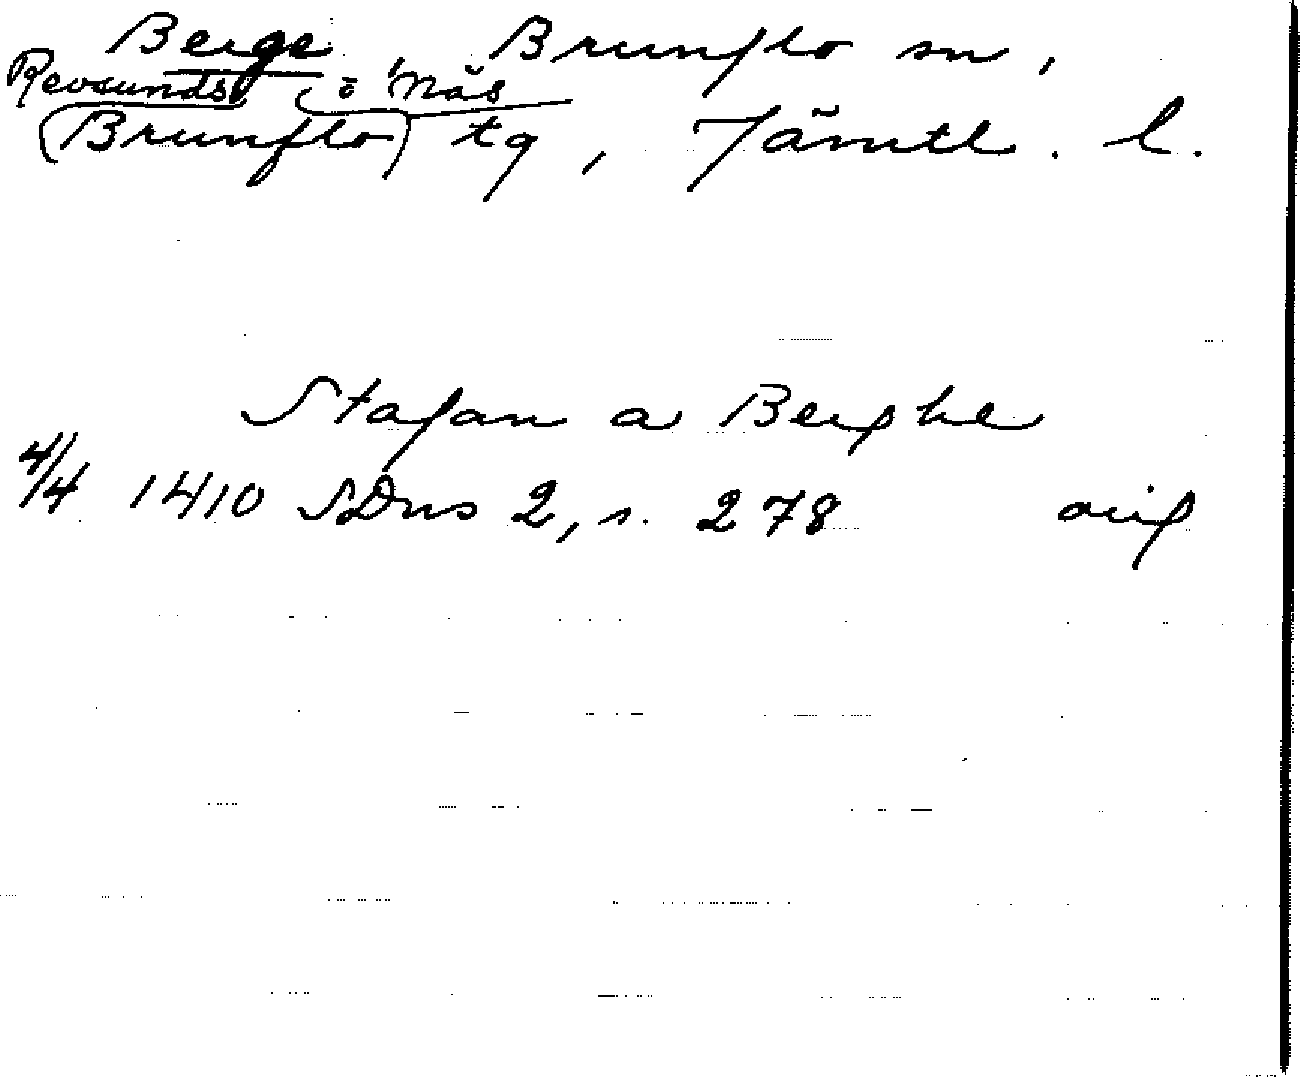 Berge, Brunflo sn,
Revsunds o Näs
(Brunflo) tg, Jämtl. l.
Stafan a Berghe
4/4 1410 SDns 2, s. 278 orig